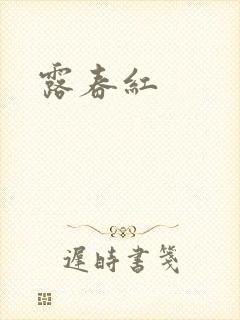 露春紅
遲時書箋